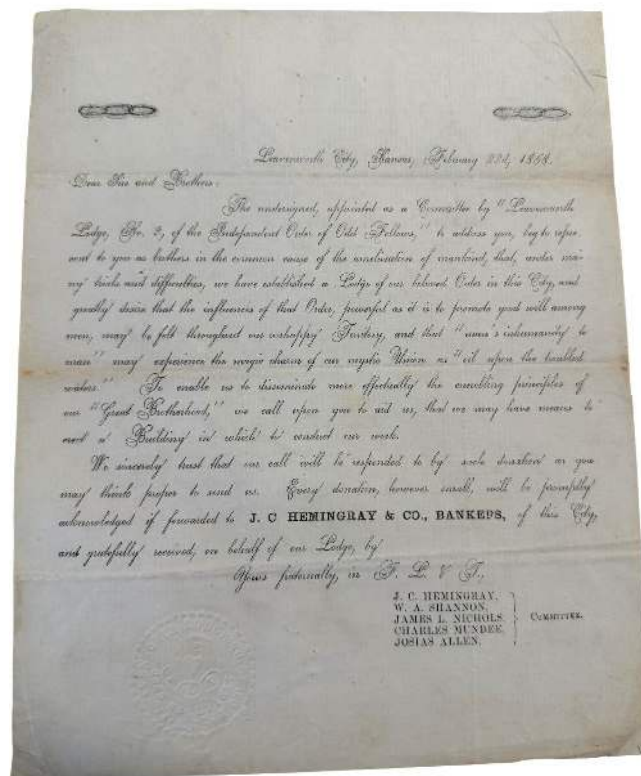 Leavenworth City, Kansas, February 22d, 1858.
Dear Sirs and Brothers:
The undersigned, appointed as a Committee by "Leavenworth
Lodge, No. 2, of the Independent Order of Odd Fellows," to address you, beg to repre-
sent to you as brothers in the common cause of the amelioration of mankind, that, under ma-
ny trials and difficulties, we have established a Lodge of our beloved Order in this City, and
greatly desire that the influences of that Order, powerful as it is to promote good will among
men, may be felt throughout our unhappy Territory, and that "man's inhumanity to
man" may experience the magic charm of our mystic Union as "oil upon the troubled
waters." To enable us to disseminate more effectually the ennobling principles of
our "Great Brotherhood," we call upon you to aid us, that we may have means to
erect a Building in which to conduct our work.
We sincerely trust that our call will be responded to by such donation as you
may think proper to send us. Every donation, however small, will be promptly
acknowledged if forwarded to J. C HEMINGRAY & CO., BANKERS, of this City,
and gratefully received, on behalf of our Lodge, by
Yours fraternally, in F. L. & T.,
J. C. HEMINGRAY,
W. A. SHANNON,
JAMES L. NICHOLS,
CHARLES MUNDEE,
JOSIAS ALLEN,
COMMITTEE.